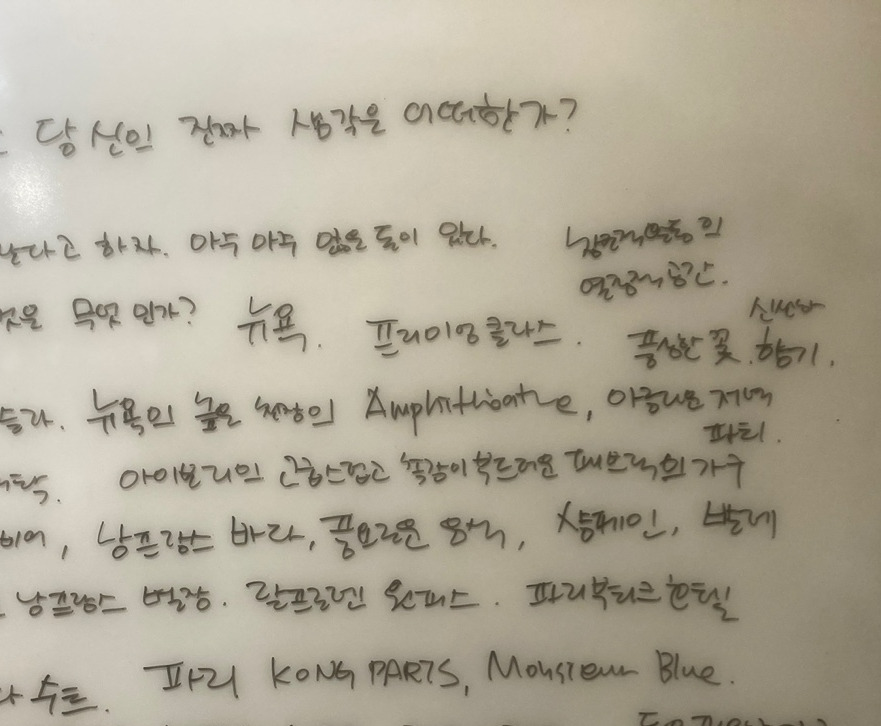 당신의 진짜 생각은 어떠한가?
났다고 하자. 아주 아주 많은 돈이 왔다.
열정적 공간.
것은 무엇인가? 뉴욕. 프리미엄클라스. 풍성한 꽃. 신선한 향기.
뉴욕의 높은 천장의 Amphitheatre, 아름다운 저녁
파티.
아이보리의 고급스럽고 촉감이 부드러운 패브릭의 가구
남프랑스 바다, 풍요로운 음식, 샴페인, 발레
남프랑스 별장. 랄프로렌 원피스. 파리 부티크 호텔
수트. 파리 KONG PARIS, Monsieur Blue.